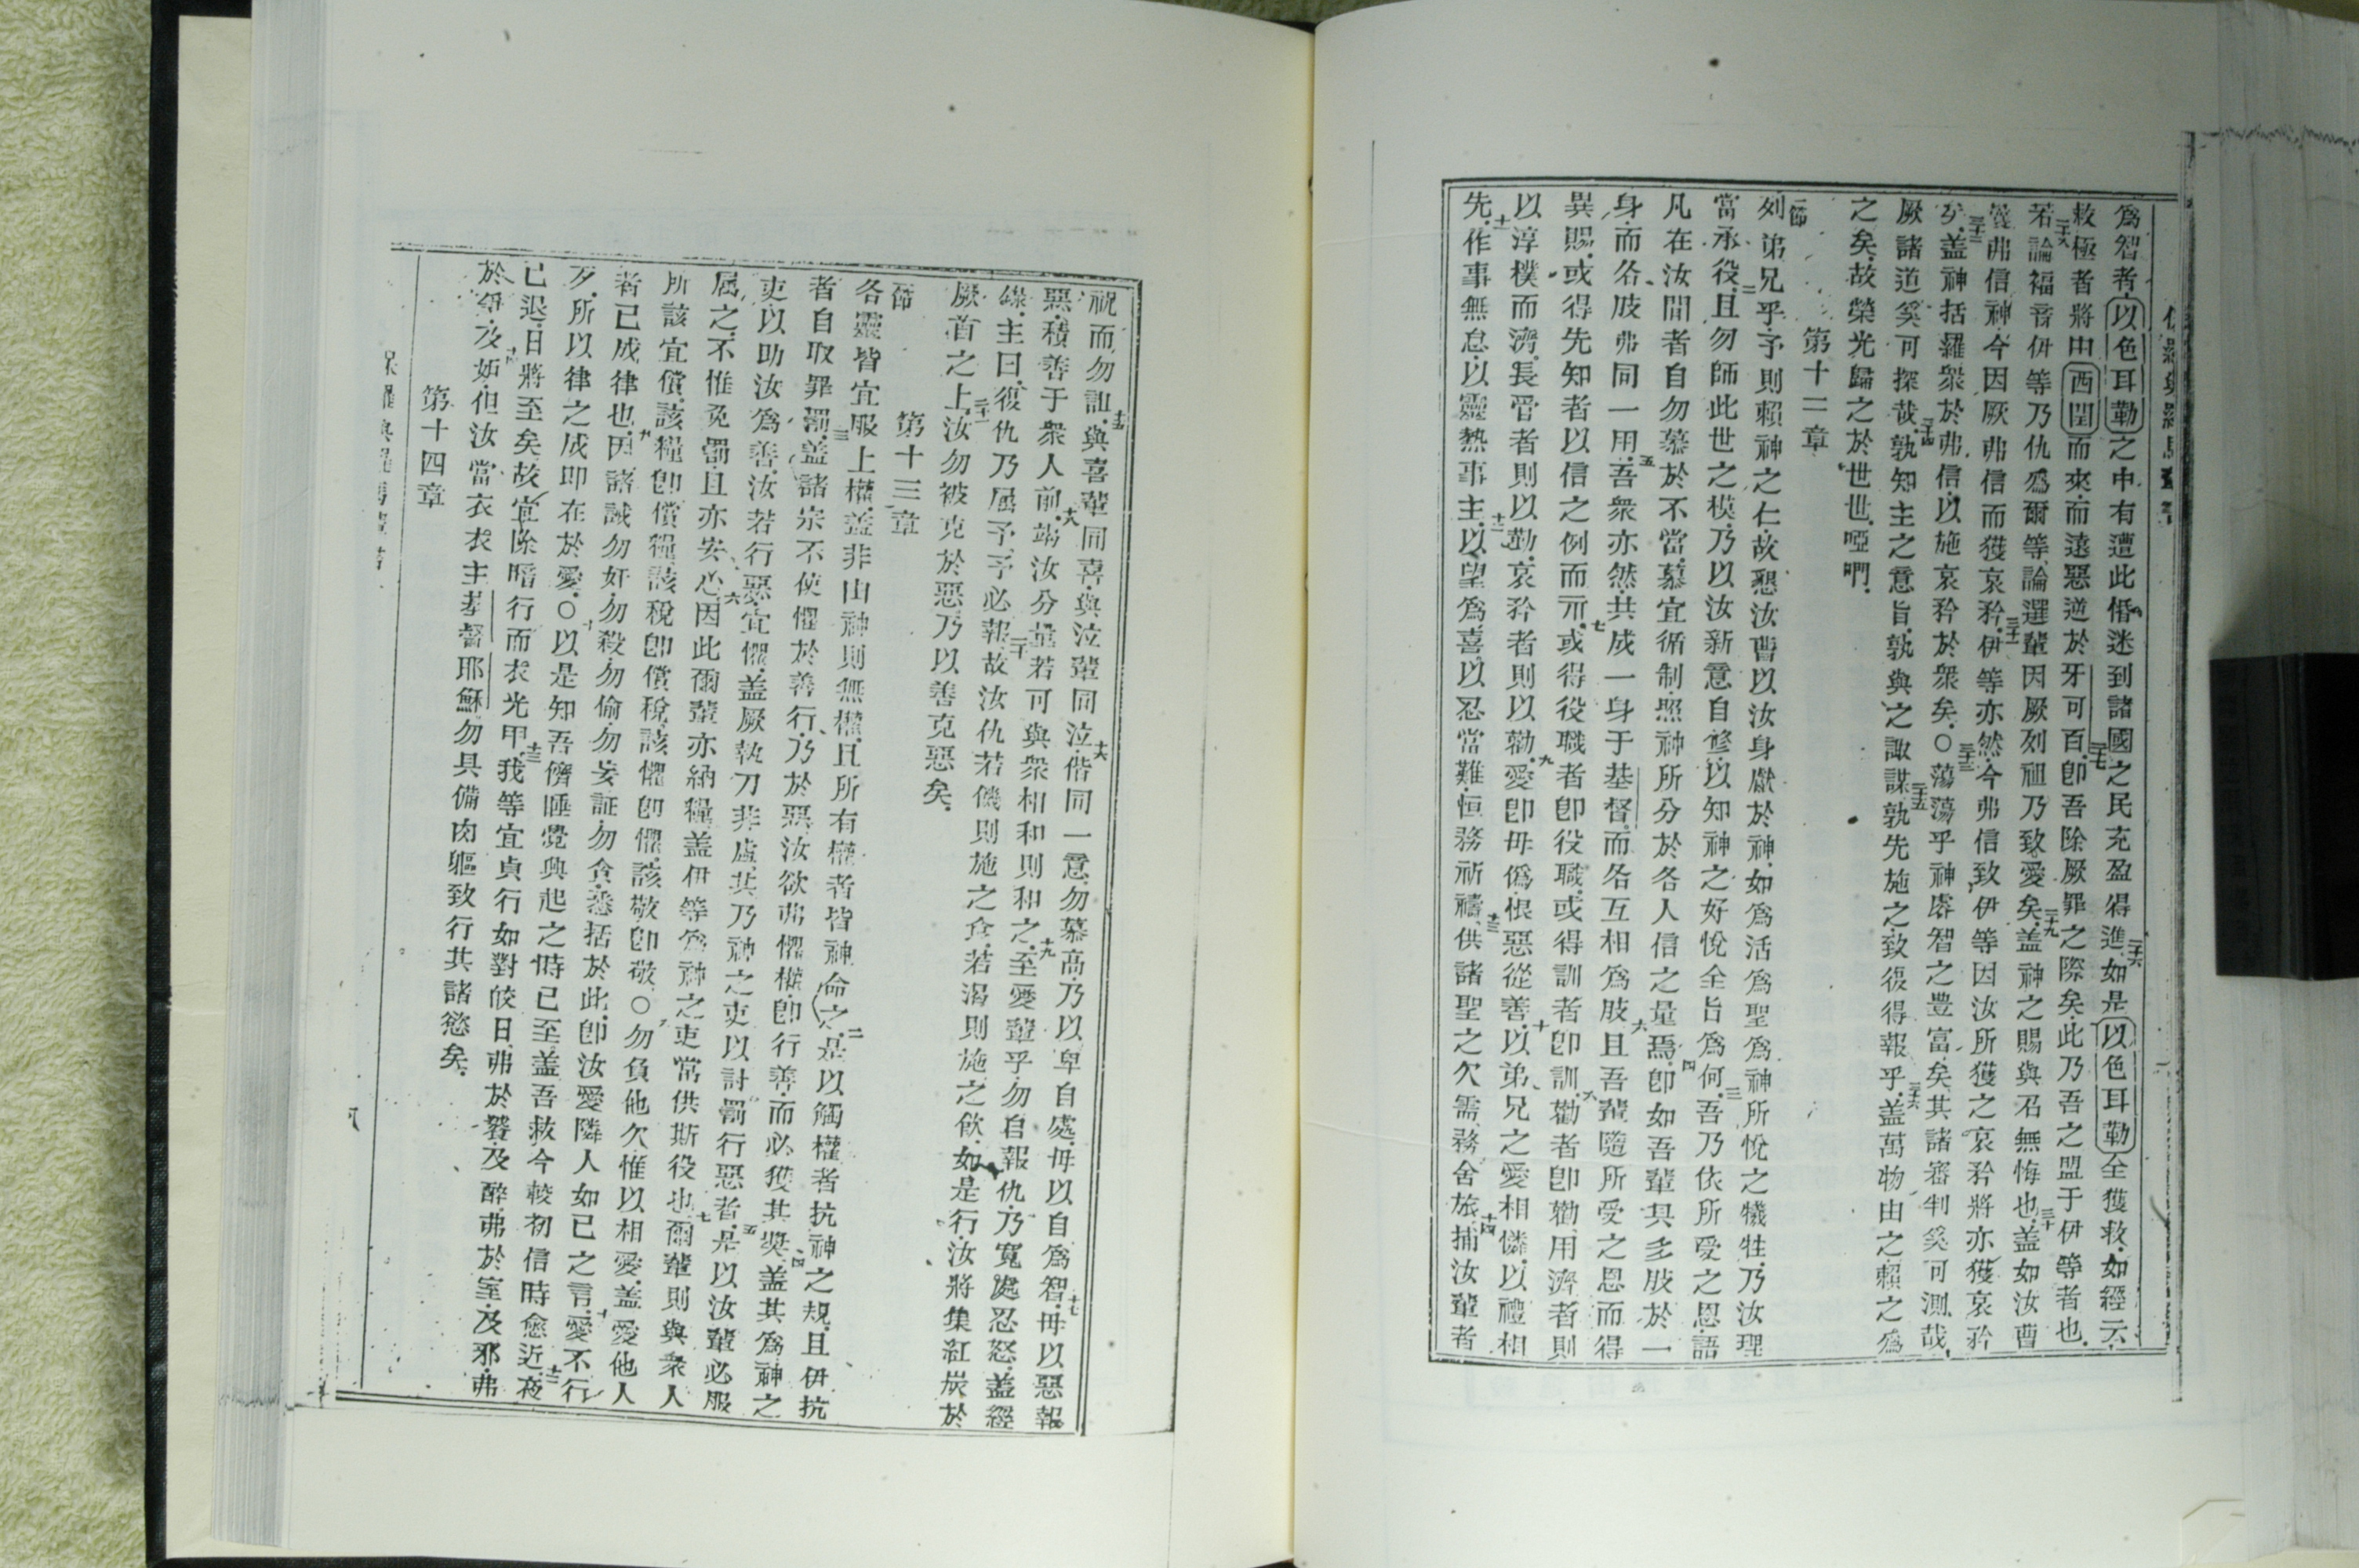 爲智者以色耳勒之中有遭此惛迷到諸國之民充盈得進二十六如是以色耳勒全獲救如經云
救極者將由西閏而來而遠惡逆於牙可百二十七卽吾除厥罪之際矣此乃吾之盟于伊等者也
二十八若論福音伊等乃仇爲爾等論選輩因厥列祖乃致愛矣二十九蓋神之賜與召無悔也三十蓋如汝曹
曩弗信神今因厥弗信而獲哀矜三十一伊等亦然今弗信致伊等因汝所獲之哀矜將亦獲哀矜
三十二矣蓋神括羅衆於弗信以施哀矜於衆矣○三十三蕩蕩乎神睿智之豊富矣其諸審判奚可測哉
厥諸道奚可探哉三十四孰知主之意旨孰與之諏謀三十五孰先施之致復得報乎三十六蓋萬物由之賴之爲
之矣故榮光歸之於世世啞們
第十二章
一節列弟兄乎予則賴神之仁故懇汝曹以汝身獻於神如爲活爲聖爲神所悅之犧牲乃汝理
當承役二且勿師此世之模乃以汝新意自修以知神之好悅全旨爲何三吾乃依所受之恩語
凡在汝間者自勿慕於不當慕宜循制照神所分於各人信之量焉四卽如吾輩具多肢於一
身而各肢弗同一用五吾衆亦然共成一身于基督而各互相爲肢六且吾輩隨所受之恩而得
異賜或得先知者以信之例而示七或得役職者卽役職或得訓者卽訓八勸者卽勸用濟者則
以淳樸而濟長晉者則以勤哀矜者則以勸九愛卽毋僞恨惡從善十以弟兄之愛相憐以禮相
先十一作事無怠以靈熱事主十二以望爲喜以忍當難恒務祈禱十三供諸聖之欠需務舍旅十四捕汝輩者
祝而勿詛十五與喜輩同喜與泣輩同泣十六偕同一意勿慕高乃以卑自處毋以自爲智十七毋以惡報
惡積善于衆人前十八竭汝分量若可與衆相和則和之十九至愛輩乎勿自報仇乃寬處忍怒蓋經
錄主曰復仇乃屬予予必報二十故汝仇若饑則施之食若渴則施之飲如是行汝將集紅炭於
厥首之上二十一汝勿被克於惡乃以善克惡矣
第十三章
一節各靈皆宜服上權蓋非由神則無權且所有權者皆神命之二是以觸權者抗神之規且伊抗
者自取罪罰三蓋諸宗不使懼於善行乃於惡汝欲弗懼權卽行善而必獲其奬四蓋其爲神之
吏以助汝爲善汝若行惡宜懼蓋厥執刀非虛其乃神之吏以討罰行惡者五是以汝輩必服
屬之不惟免罰且亦安心六因此爾輩亦納糧蓋伊等爲神之吏常供斯役也七爾輩則與衆人
所該宜償該糧卽償糧該稅卽償稅該懼卽懼該敬卽敬○八勿負他欠惟以相愛蓋愛他人
者已成律也九因諸誡勿奸勿殺勿偷勿妄証勿貪悉括於此卽汝愛隣人如己之言十愛不行
歹所以律之成卽在於愛○十一以是知吾儕睡覺興起之時已至蓋吾救今較初信時愈近十二夜
已退日將至矣故宜除暗行而衣光甲十三我等宜貞行如對皎日弗於饕及醉弗於室及邪弗
於爭及妬十四但汝當衣衣主基督耶穌勿具備肉軀致行其諸慾矣
第十四章